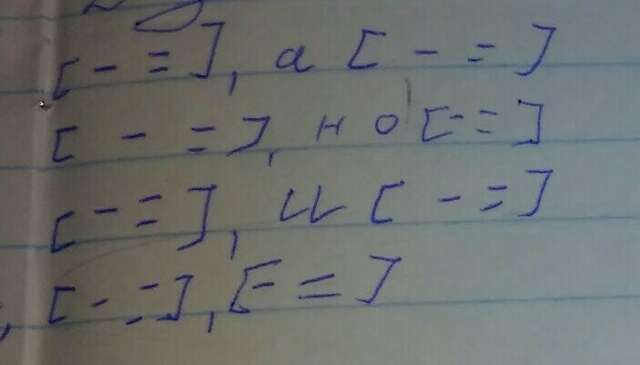 [- =], а [- =]
[- =], но [- =]
[- =], и [- =]
, [- =], [- =]